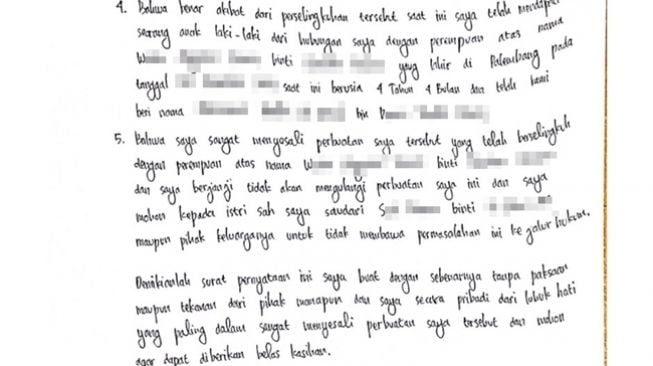 4. Bahwa benar akibat dari perselingkuhan tersebut saat ini saya telah
seorang anak laki-laki dari hubungan saya dengan perempuan atas nama
W binti yang lahir di Palembang pada
tanggal saat ini berusia 4 Tahun 4 Bulan dan telah kami
beri nama bin
5. Bahwa saya sangat menyesali perbuatan saya tersebut yang telah berselingkuh
dengan perempuan atas nama W binti
dan saya berjanji tidak akan mengulangi perbuatan saya ini dan saya
mohon kepada istri sah saya saudari S binti
maupun pihak keluarganya untuk tidak membawa permasalahan ini ke jalur hukum.
Demikianlah surat pernyataan ini saya buat dengan sebenarnya tanpa paksaan
maupun tekanan dari pihak manapun dan saya secara pribadi dari lubuk hati
yang paling dalam sangat menyesali perbuatan saya tersebut dan mohon
agar dapat diberikan belas kasihan.